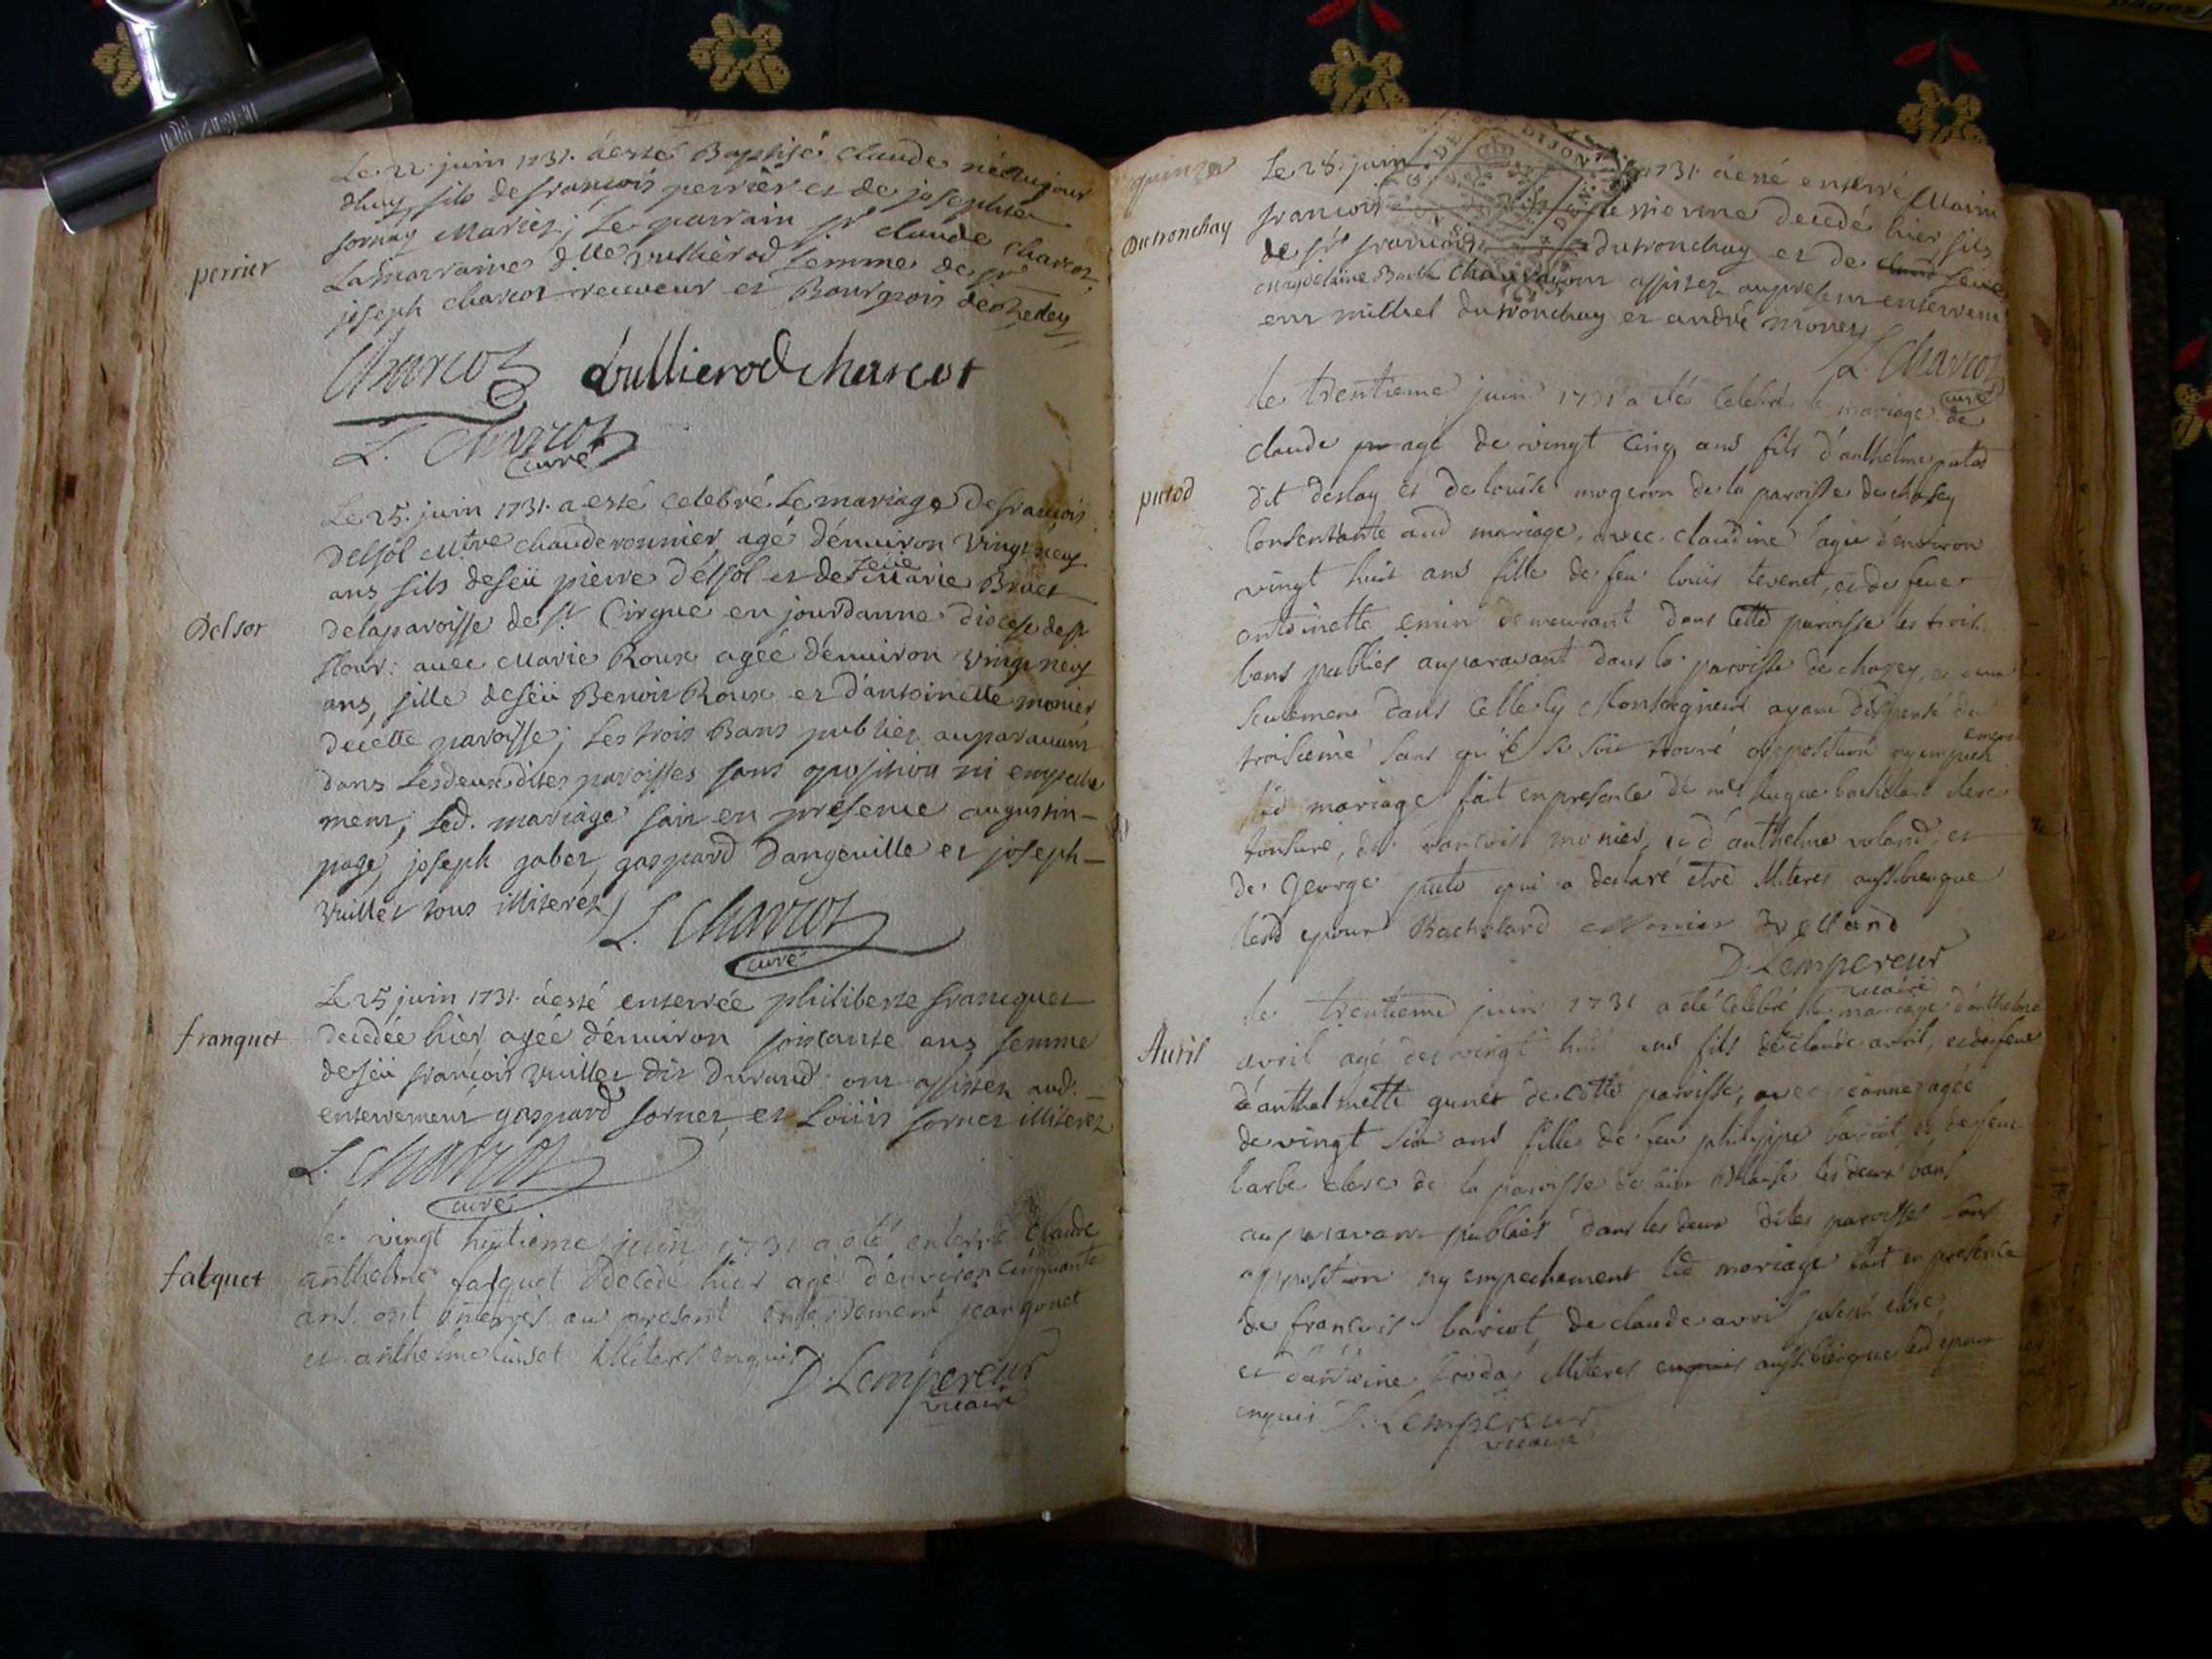 Le 22 juin 1731. a esté Baptisé claude né aujour
dhuy fils de françois perrier et de josephte
sornay Mariez; Le parrain sr claude charcot,
La marraine dlle vulliérod femme de sr
joseph charcot receveur et Bourgeois de
perrier
Charcot dvullierod charcot
L. Charcot
curé
Le 25. juin 1731. a esté celebré Le mariage de françois
Delsol Mtre chauderonnier, agé d'environ vingt neuf
ans fils de feü pierre d'elsol et de feüe Marie Bruet
de la paroisse de st Cirgue en jourdanne diocese de st
flour: avec Marie Roux agée d'environ vingt neuf
ans, fille de feü Benoit Roux et d'antoinette monier
de cette paroisse; Les trois Bans publiez auparavant
dans Les deux dites paroisses sans oposition ni empeche
ment; Led. mariage fait en présence augustin
pagé, joseph gabet, gaspard Dangeville et joseph
vuillet tous illiterez
Delsor
L. Charcot
curé
Le 25 juin 1731. a esté enterrée philiberte francquet
decedée hier, agée d'environ soixante ans femme
de feü françois vuillet dit Durand: ont assistez aud.
enterrement gaspard sornet et Loüis sornet illiterez
franquet
L. Charcot
curé
le vingt huitieme juin 1731 a été enterré claude
anthelme falquet decedé hier agé d'environ cinquante
ans. ont au present enterrement jean gunet
et anthelme illiteres enquis
falquet
D. Lempereur
vicaire
quinze
Le 28. juin 1731. a esté enterré
françois decedé hier fils
de sr françois dutronchay et de feüe
magdelaine ont assistez au present enterrem
ent michel dutronchay et andré monet
Dutronchay
L. Charcot
curé
le trentieme juin 1731 a été celebré le mariage de
claude agé de vingt cinq ans fils d'anthelme putod
dit deslay et de louise mogeron de la paroisse de chazey
consentante aud mariage, avec claudine agée d'environ
vingt huit ans fille de feu louis tevenet, et de feue
antoinette emin demeurant dans cette paroisse les trois
bans publiés auparavant dans la paroisse de chazey, et un
seulement dans celle cy Monseigneur ayant dispensé du
troisieme sans qu'il se soit trouvé opposition ny empech
ement
led mariage fait en presence de mre hugue bachelard clerc
tonsuré, de francois monier, et d'anthelme voland, et
de george puto qui a declaré etre illiteres aussi bien que
lesd epoux Bachelard Monier Volland
putod
D. Lempereur
vicaire
le trentieme juin 1731 a été celebré le mariage d'anthelme
avril agé de vingt huit ans fils de claude avril, et de feue
d'anthelmette gunet de cette paroisse, avec jeanne agée
de vingt six ans fille de feu philippe bariot, et de feue
barbe clerc de la paroisse de les deux bans
auparavant publiés dans les deux dites paroisses sans
opposition ny empechement led mariage fait en presence
de francois bariot, de claude avril, joseph clerc,
et d'antoine illiteres enquis aussi bien que led epoux
enquis D. Lempereur
vicaire
Avril